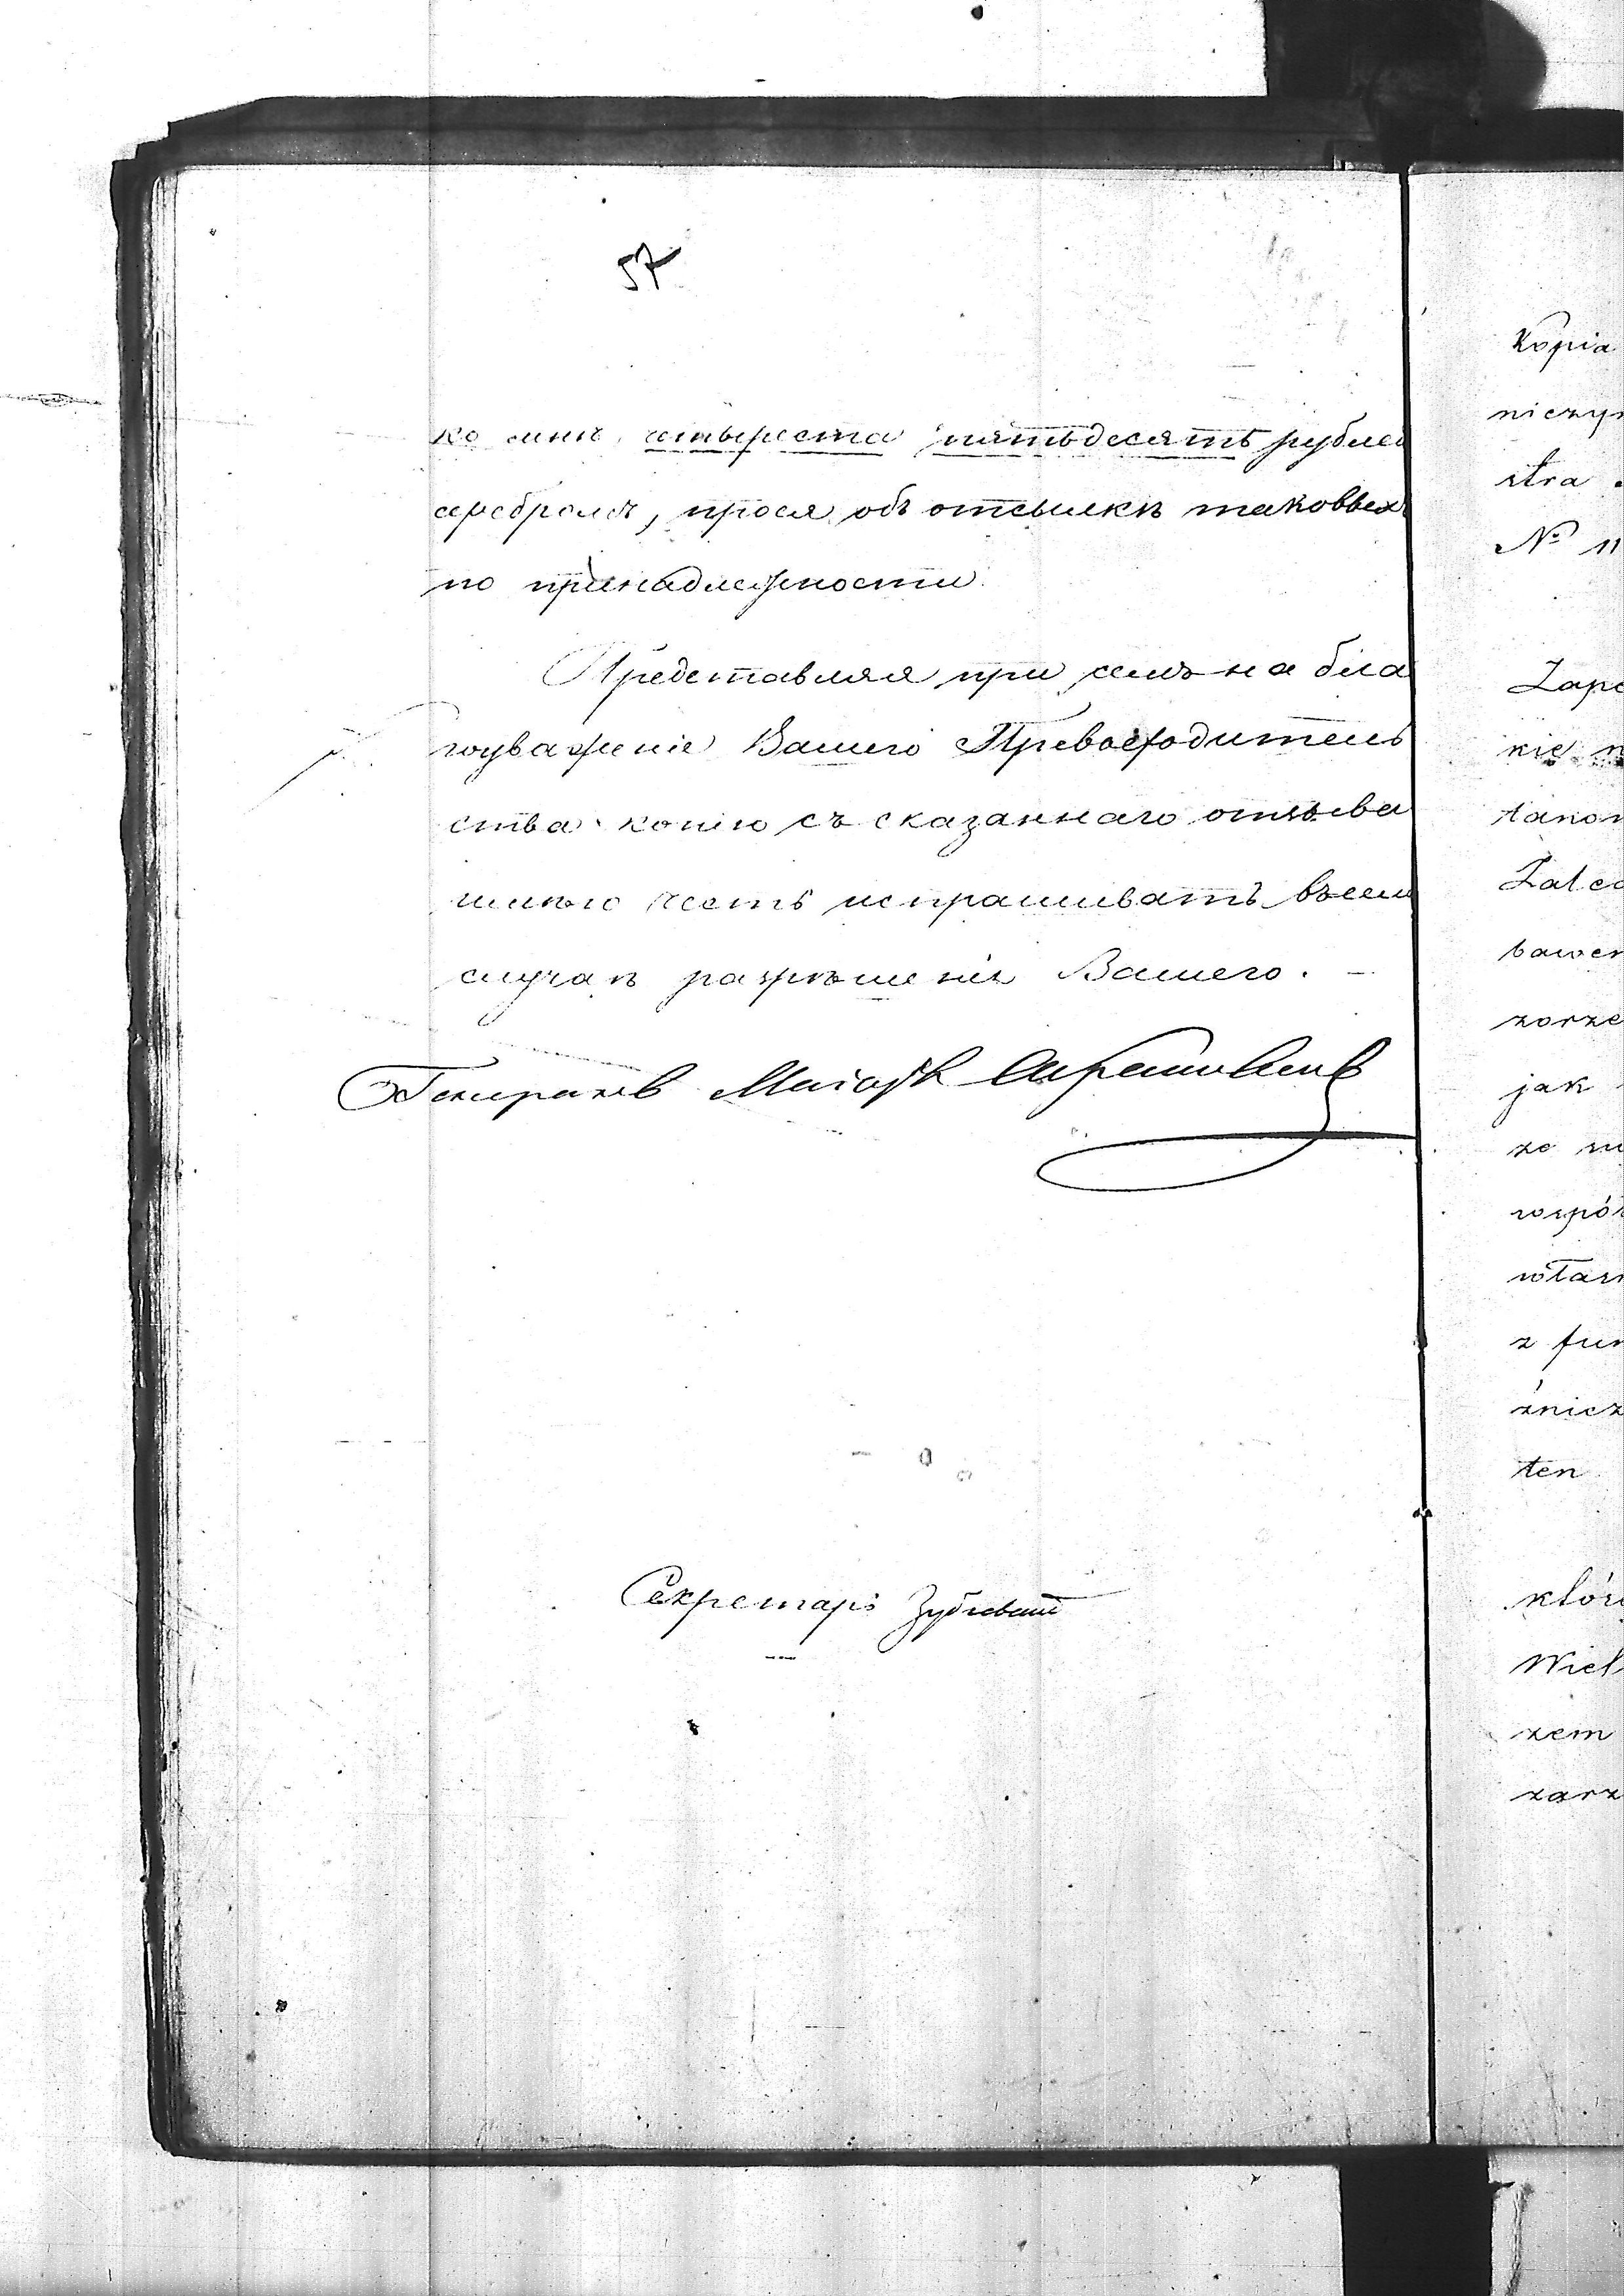 57
ко мнѣ четыреста пятьдесятъ рублей
серебромъ, прося объ отсылкѣ таковыхъ
по принадлежности.
Представляя при семъ на бла
гоуваженіе Вашего Превосходитель
ства копію съ сказаннаго отзыва
имѣю честь испрашивать въ семъ
случаѣ разрѣшенія Вашего. —
Генералъ Маіоръ
Секретарь
Kopia
niczy
stra
№ 11
Zap
kie
tanow
Zalec
bawe
zorze
jak
ze
wspó
włas
z fun
źnicz
ten
któr
Wiel
zem
zarz